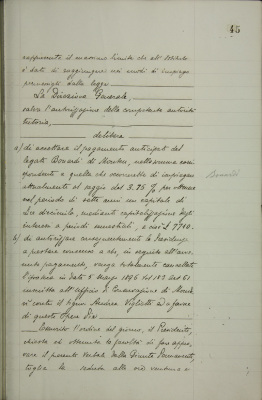 45
rappresenta il massimo limite che all'Istituto
è dato di raggiungere nei modi di impiego
preveduti dalla legge
La Direzione Generale,
salva l'autorizzazione della competente autorità
tutoria,
delibera
a) di accettare il pagamento anticipato del
legato Bonardi di nella somma corri-
spondente a quella che occorrerebbe di impiegare
attualmente al saggio del 3.75 % per
nel periodo di sette anni un capitale di
Lire diecimila, mediante capitalizzazione degli
interessi a periodi semestrali, e cioè L 7710.
b) di autorizzare conseguentemente la Presidenza
a prestare consenso a che, in seguito all'avve-
nuto pagamento, venga totalmente cancellata
l'ipoteca in data 5 Marzo 1896
inscritta all'Ufficio di Conservazione di
vi contro il signor Andrea Viglietti ed a favore
di questa Opera Pia
Esaurito l'ordine del giorno, il Presidente,
chiesta ed ottenuta la facoltà di fare appro-
vare il presente Verbale dalla Giunta Permanente,
toglie la seduta alle ore ventuna e